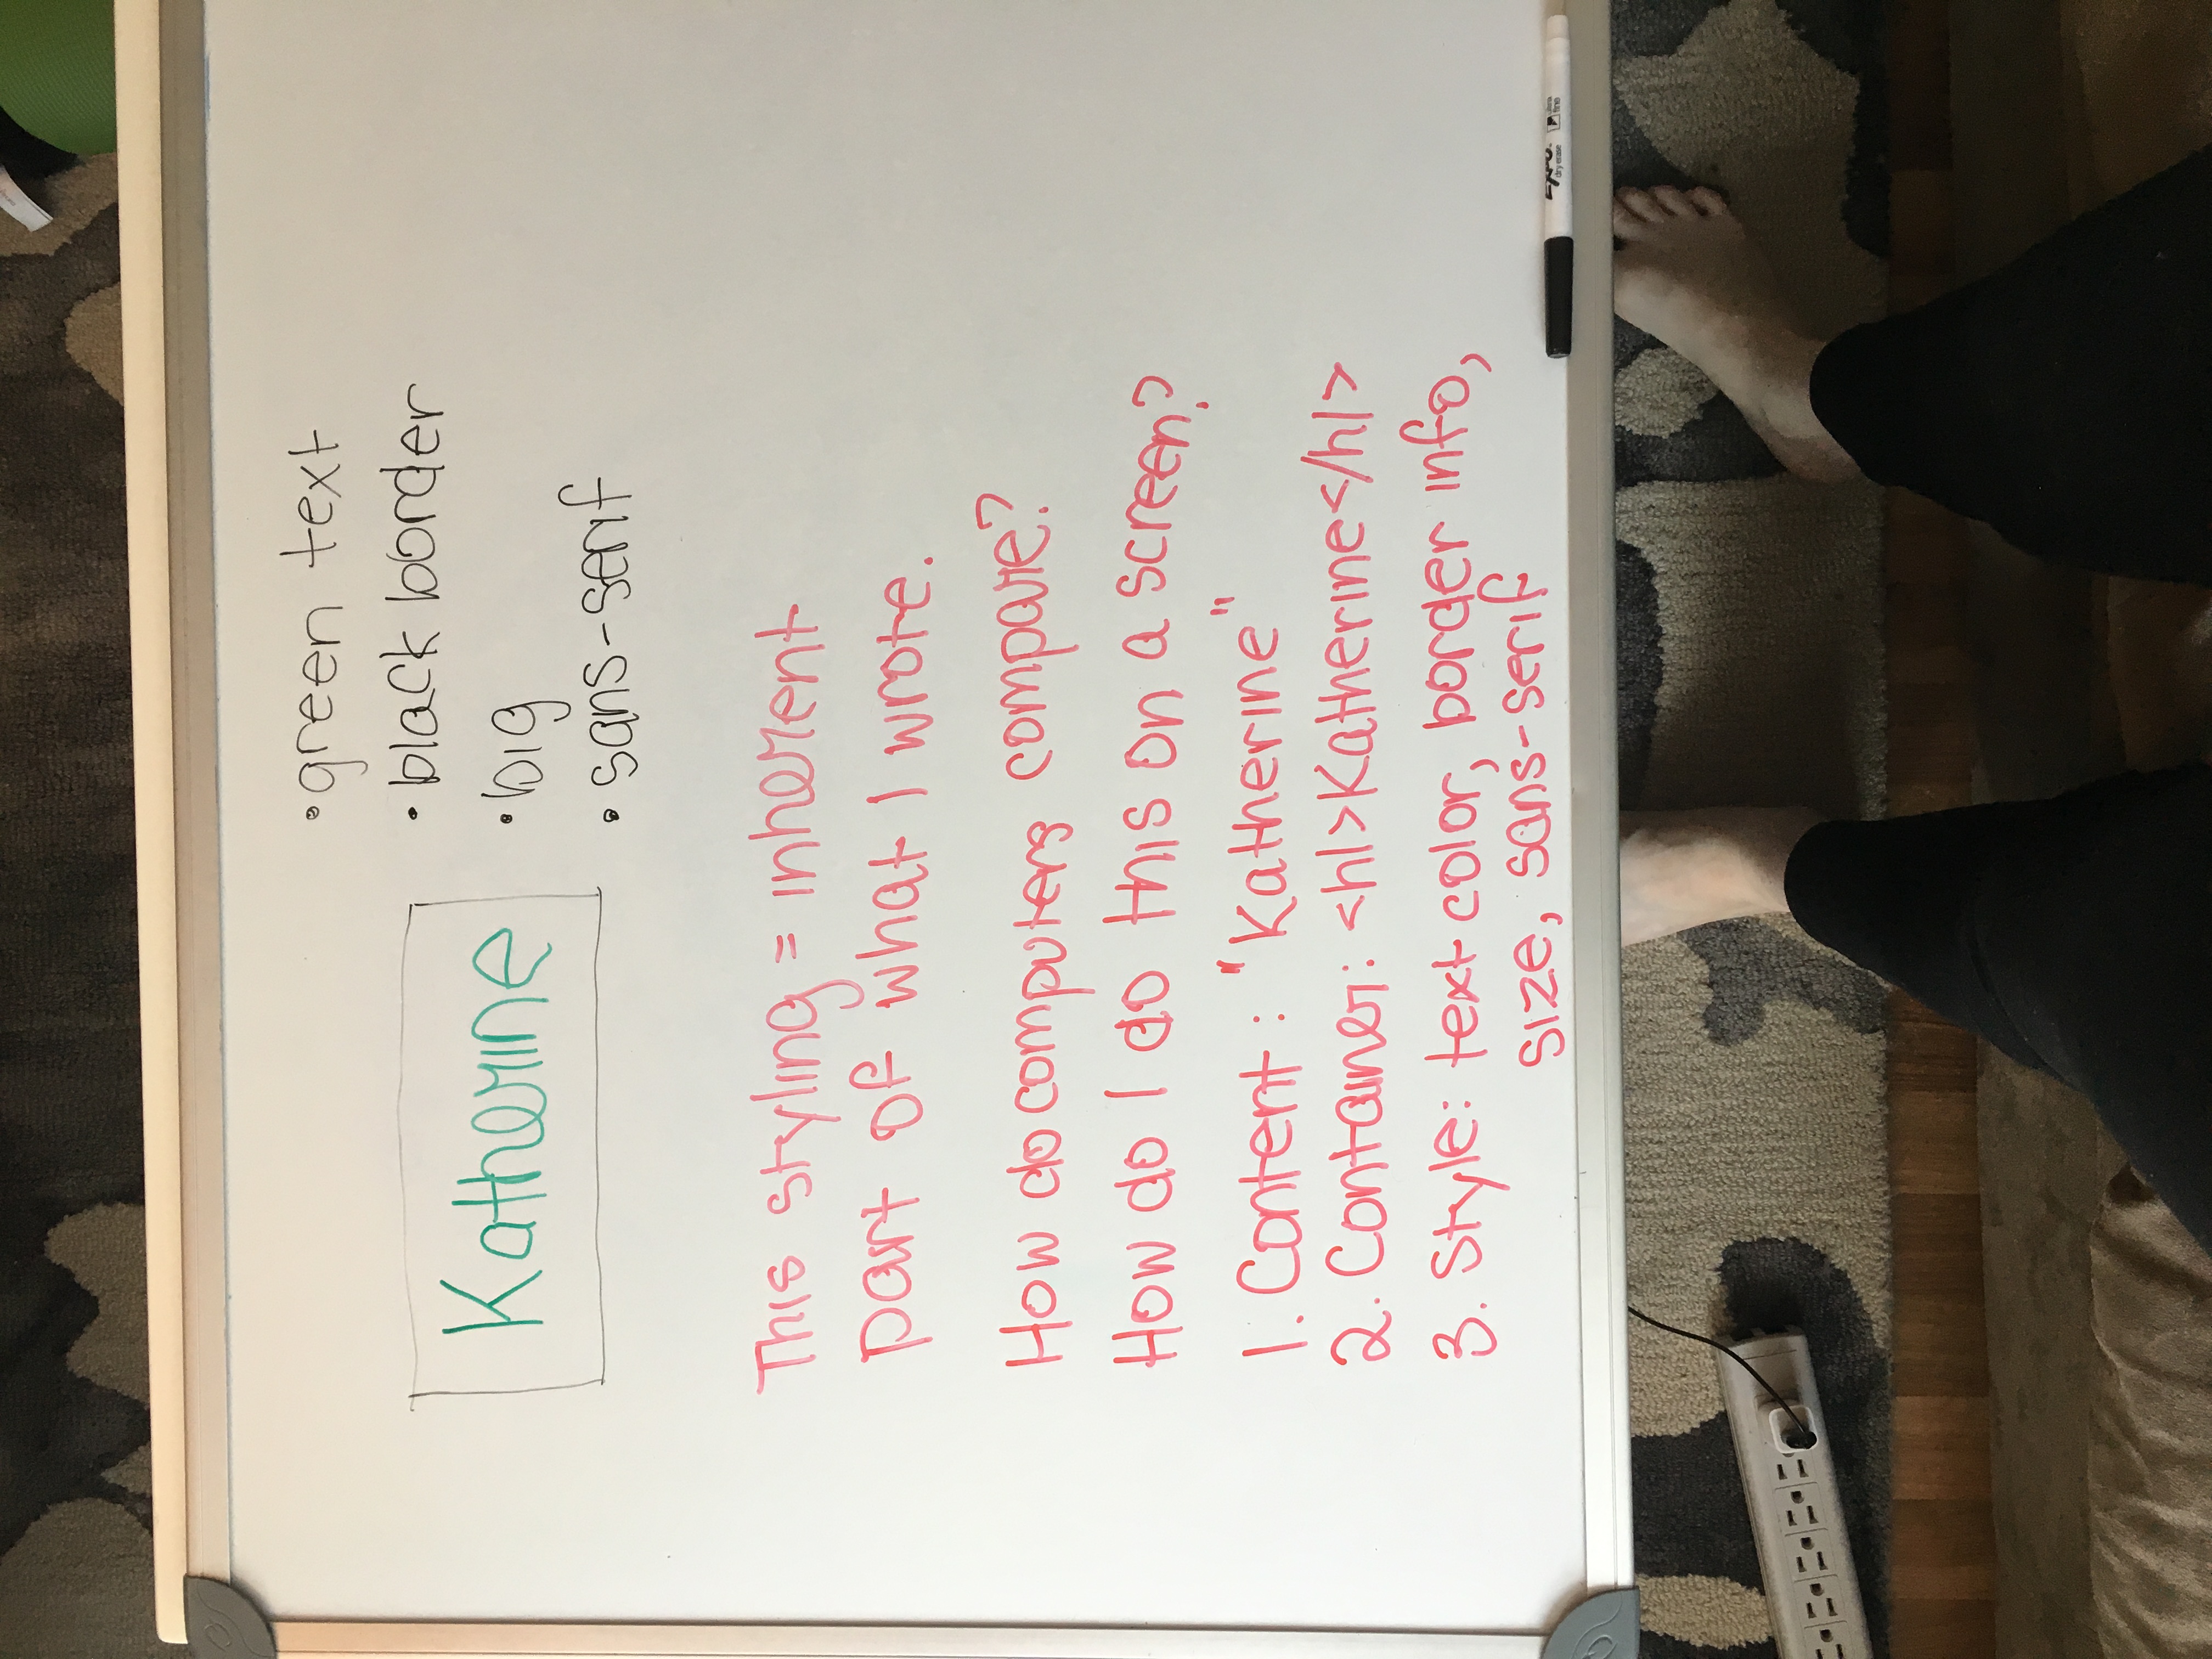 • green text
• black border
Katherine
• big
• sans-serif
This styling = inherent
part of what I wrote.
How do computers compare?
How do I do this on a screen?
1. Content: "Katherine"
2. Container: <h1>Katherine</h1>
3. Style: text color, border info,
size, sans-serif
EXPO.
dry erase
ultra
fine